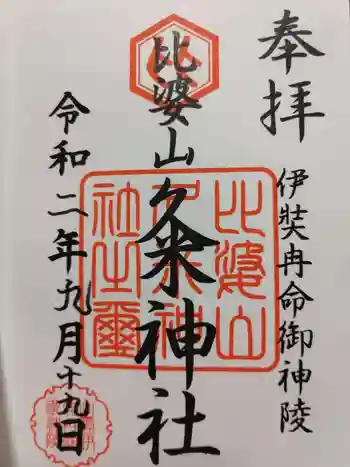 奉拝
伊奘冉命御神陵
比婆山久米神社
令和二年九月十九日
比婆山
社之璽